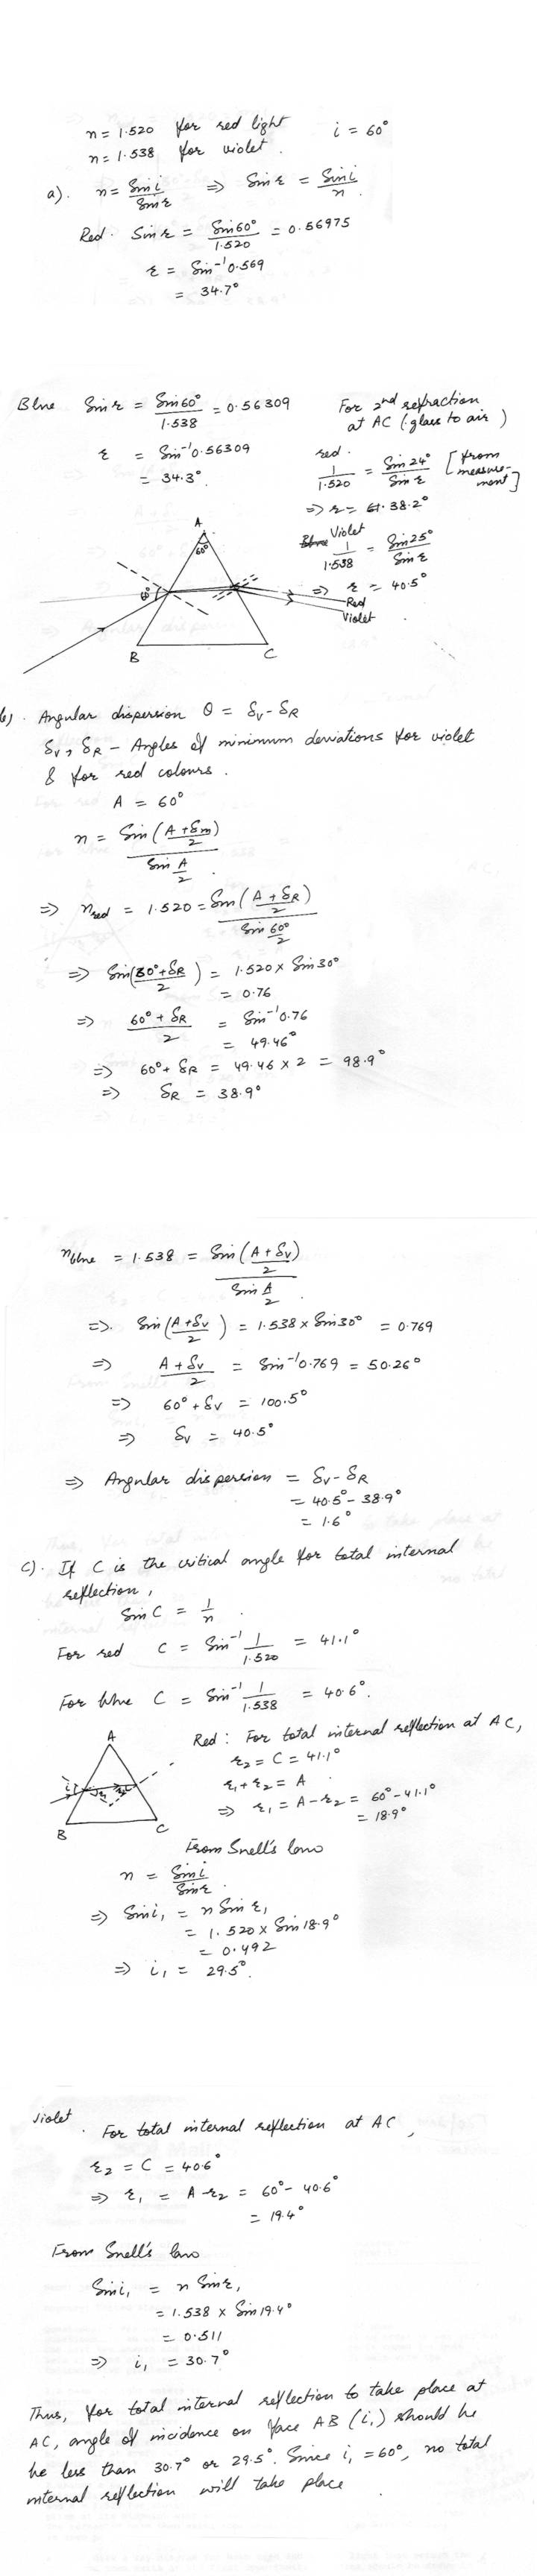 n = 1.520 for red light i = 60°
n = 1.538 for violet.
a). n = Sin i / Sin r ⇒ Sin r = Sin i / n
Red. Sin r = Sin 60° / 1.520 = 0.56975
r = Sin⁻¹ 0.569
= 34.7°
Blue Sin r = Sin 60° / 1.538 = 0.56309
r = Sin⁻¹ 0.56309
= 34.3°
For 2nd refraction
at AC (glass to air)
red.
1 / 1.520 = Sin 24° / Sin r [from measurement]
⇒ r = 38.2°
Violet
1 / 1.538 = Sin 25° / Sin r
⇒ r = 40.5°
A
60°
60°
Red
Violet
B
C
b). Angular dispersion θ = δv - δR
δv, δR - Angles of minimum deviations for violet
& for red colours.
A = 60°
n = Sin (A + δm / 2) / Sin A/2
⇒ n red = 1.520 = Sin (A + δR / 2) / Sin 60°/2
⇒ Sin (60° + δR / 2) = 1.520 × Sin 30°
= 0.76
⇒ 60° + δR / 2 = Sin⁻¹ 0.76
= 49.46°
⇒ 60° + δR = 49.46 × 2 = 98.9°
⇒ δR = 38.9°
n blue = 1.538 = Sin (A + δv / 2) / Sin A/2
⇒. Sin (A + δv / 2) = 1.538 × Sin 30° = 0.769
⇒ A + δv / 2 = Sin⁻¹ 0.769 = 50.26°
⇒ 60° + δv = 100.5°
⇒ δv = 40.5°
⇒ Angular dispersion = δv - δR
= 40.5° - 38.9°
= 1.6°
C). If C is the critical angle for total internal
reflection,
Sin C = 1 / n.
For red C = Sin⁻¹ 1 / 1.520 = 41.1°
For blue C = Sin⁻¹ 1 / 1.538 = 40.6°.
Red : For total internal reflection at AC,
r₂ = C = 41.1°
r₁ + r₂ = A
⇒ r₁ = A - r₂ = 60° - 41.1°
= 18.9°
A
i
r₁
r₂
B
C
From Snell's law
n = Sin i / Sin r
⇒ Sin i₁ = n Sin r₁
= 1.520 × Sin 18.9°
= 0.492
⇒ i₁ = 29.5°.
Violet. For total internal reflection at AC,
r₂ = C = 40.6°
⇒ r₁ = A - r₂ = 60° - 40.6°
= 19.4°
From Snell's law
Sin i₁ = n Sin r₁
= 1.538 × Sin 19.4°
= 0.511
⇒ i₁ = 30.7°
Thus, for total internal reflection to take place at
AC, angle of incidence on face AB (i₁) should be
be less than 30.7° or 29.5°. Since i₁ = 60°, no total
internal reflection will take place